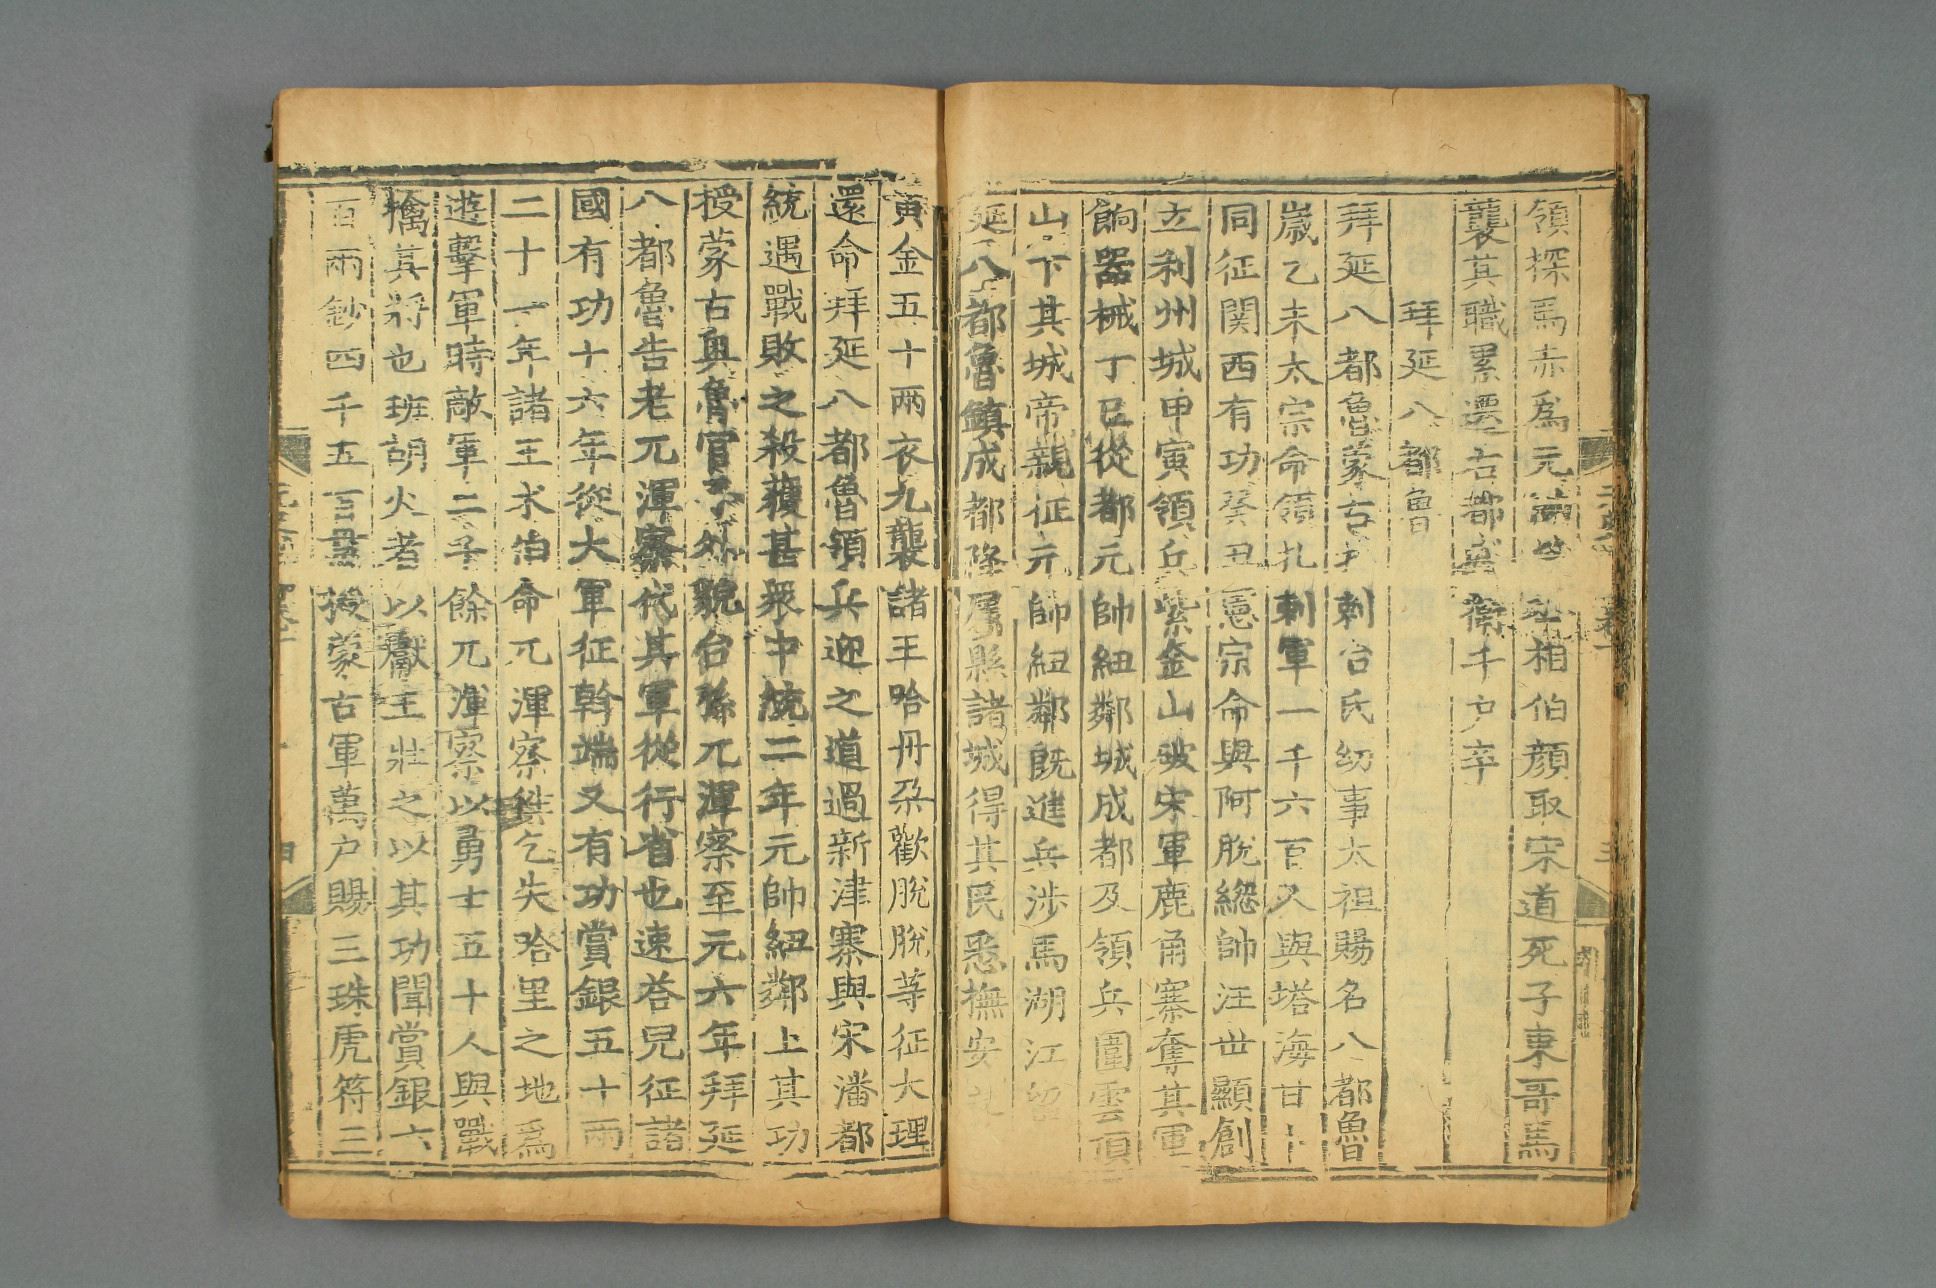 領探馬赤爲元 相伯顔取宋道死子東哥馬
襲其職累遷右都 衛千户卒
拜延八都魯
拜延八都魯蒙古 剌台氏幼事太祖賜名八都魯
嵗乙未太宗命領扎剌軍一千六百人與塔海甘卜
同征関西有功癸丑憲宗命與阿脫總帥汪世顯創
立利州城甲寅領兵紫金山破宋軍鹿角寨奪其軍
餉器械丁巳從都元帥紐鄰城成都及領兵圍雲頂
山下其城帝親征元帥紐鄰既進兵涉馬湖江留
延八都魯鎮成都降属縣諸城得其民悉撫安
黄金五十兩衣九襲諸王哈丹朶歡脫脫等征大理
還命拜延八都魯領兵迎之道過新津寨與宋潘都
統遇戰敗之殺獲甚衆中統二年元帥紐鄰上其功
授蒙古奥魯官子外貌台孫兀渾察至元六年拜延
八都魯告老兀渾察代其軍從行省也速荅兒征諸
國有功十六年從大軍征斡端又有功賞銀五十兩
二十一年諸王术伯命兀渾察往乞失哈里之地爲
遊擊軍時敵軍二千餘兀渾察以勇士五十人與戰
擒其將也班胡火者以獻王壯之以其功聞賞銀六
百兩鈔四千五百 授蒙古軍萬户賜三珠虎符三